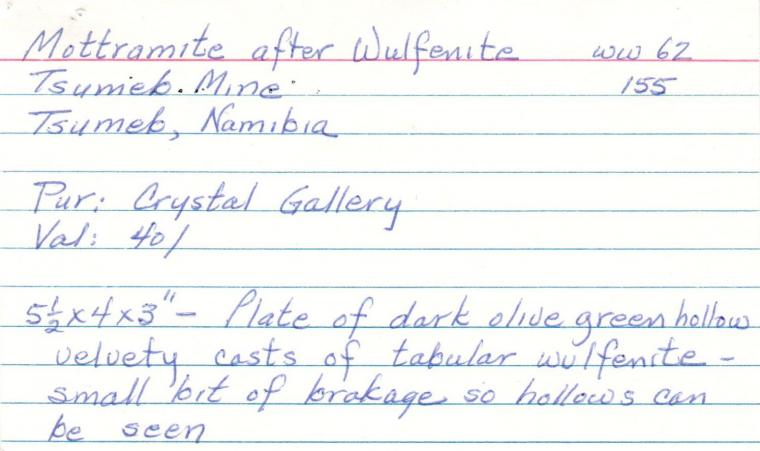 Mottramite after Wulfenite ww 62
Tsumeb. Mine 155
Tsumeb, Namibia
Pur: Crystal Gallery
Val: 40/
5½x4x3" - Plate of dark olive green hollow
velvety casts of tabular wulfenite -
small bit of brakage so hollows can
be seen